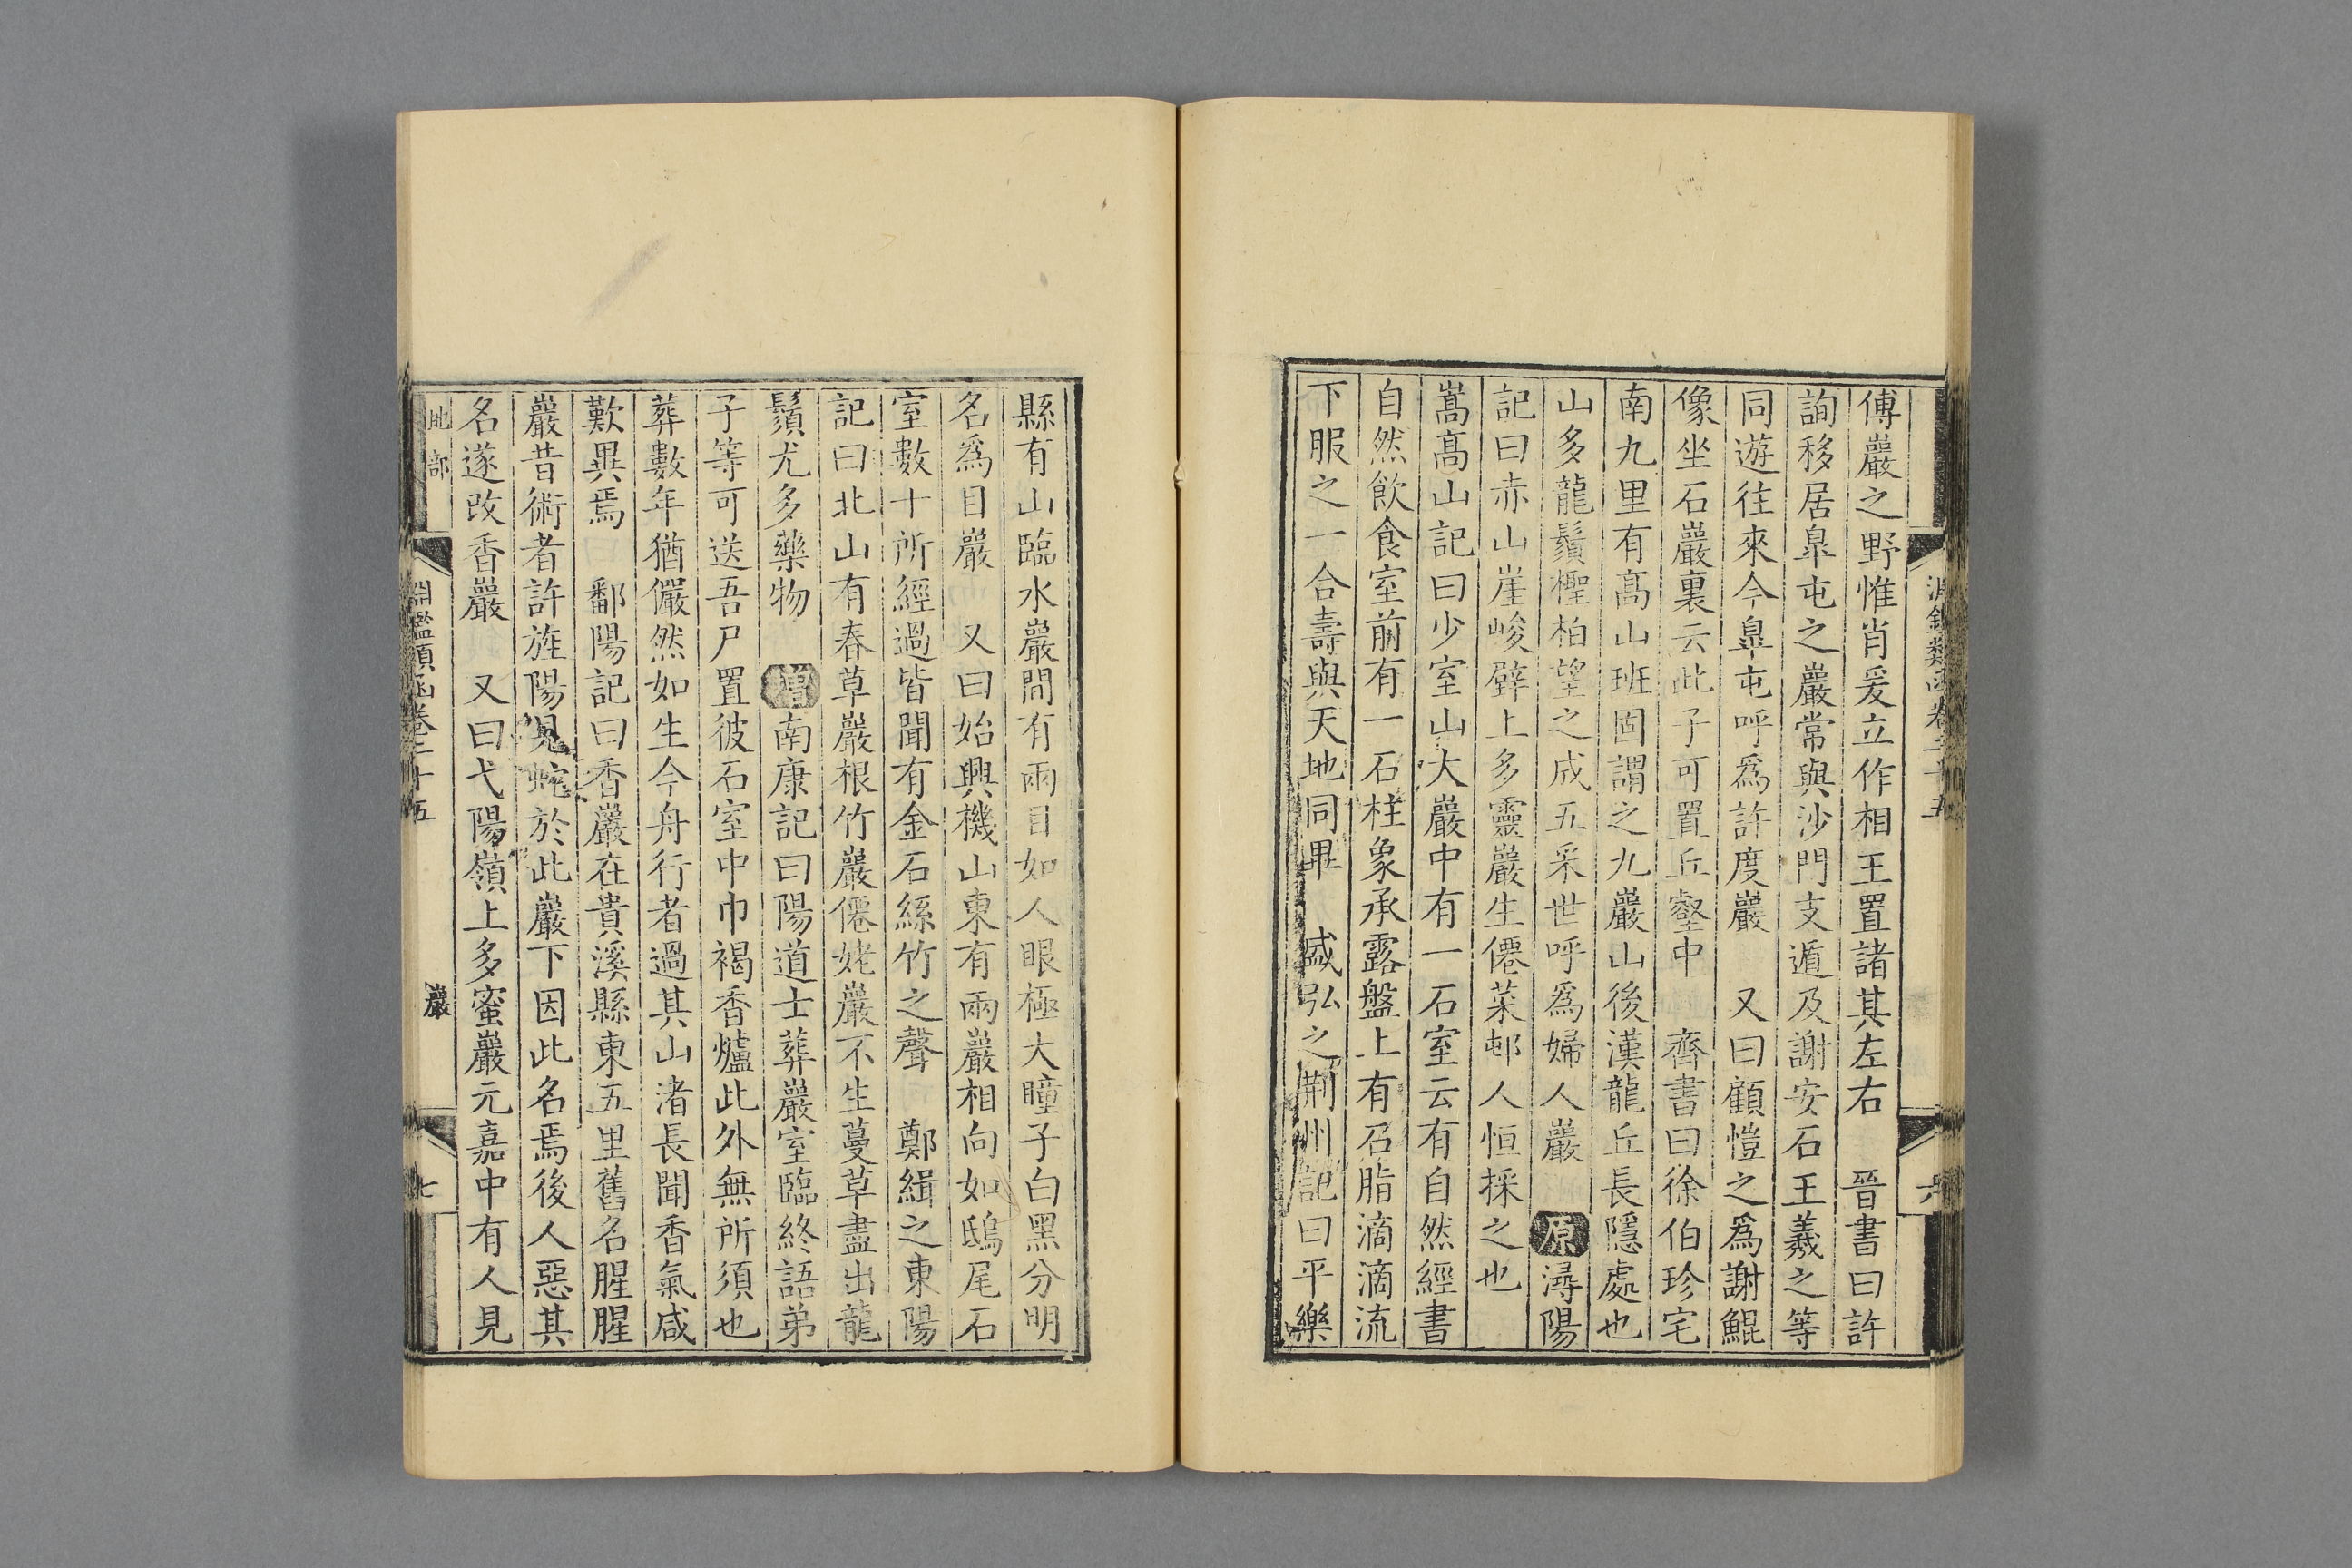 傅巖之野惟肖爰立作相王置諸其左右　晉書曰許
詢移居臯屯之巖常與沙門支遁及謝安石王羲之等
同遊往來今臯屯呼爲許度巖　又曰顧愷之爲謝鯤
像坐石巖裏云此子可置丘壑中　齊書曰徐伯珍宅
南九里有高山班固謂之九巖山後漢龍丘長隱處也
山多龍鬚檉柏望之成五采世呼爲婦人巖　原潯陽
記曰赤山崖峻壁上多靈巖生僊菜邨人恒採之也
嵩高山記曰少室山大巖中有一石室云有自然經書
自然飮食室前有一石柱象承露盤上有石脂滴滴流
下服之一合壽與天地同畢　盛弘之荆州記曰平樂
淵鑑類函卷二十五
六
縣有山臨水巖間有兩目如人眼極大瞳子白黑分明
名爲目巖　又曰始興機山東有兩巖相向如鴟尾石
室數十所經過皆聞有金石絲竹之聲　鄭緝之東陽
記曰北山有春草巖根竹巖僊姥巖不生蔓草盡出龍
鬚尤多藥物　增南康記曰陽道士葬巖室臨終語弟
子等可送吾尸置彼石室中巾褐香爐此外無所須也
葬數年猶儼然如生今舟行者過其山渚長聞香氣咸
歎異焉　鄱陽記曰香巖在貴溪縣東五里舊名腥腥
巖昔術者許旌陽見蛇於此巖下因此名焉後人惡其
名遂改香巖　又曰弋陽嶺上多蜜巖元嘉中有人見
地部
淵鑑類函卷二十五
巖
七